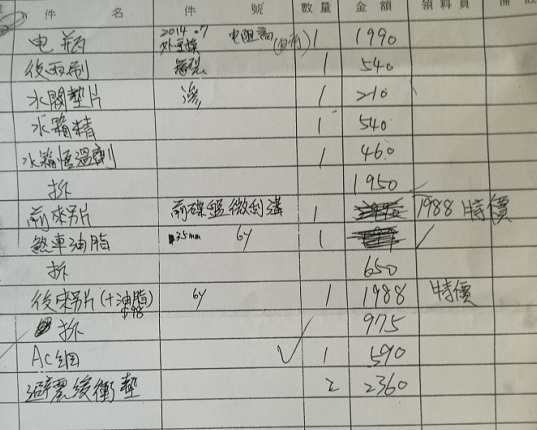 件 名 件 號 數量 金額 領料員 備註
电瓶 2014-7 外更換 电阻高 1 1990
後雨刷 龜裂 1 540
水閥墊片 滲 1 210
水箱精 1 540
水箱恆溫劑 1 460
拆 1950
前來另片 前碟盤微刮溝 1 1988 特價
煞車油脂 3.5mm 6y 1
拆 650
後來另片(+油脂) 6y 1 1988 特價
$98
拆 975
AC網 1 590
避震緩衝墊 2 2360